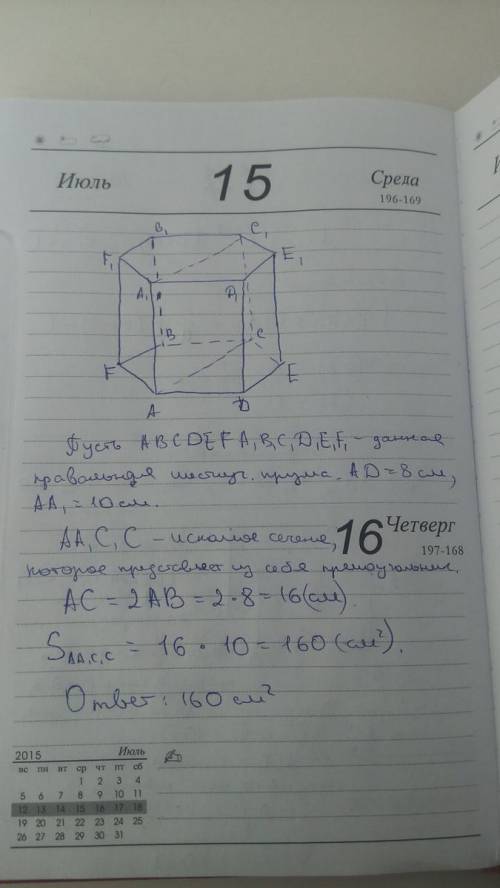 Июль 15 Среда
196-169
B₁ C₁
F₁ E₁
A₁ D₁
B C
F E
A D
Пусть ABCDEFA₁B₁C₁D₁E₁F₁ - данная
правильная шестиуг. призма. AD = 8 см,
AA₁ = 10 см.
AA₁C₁C - искомое сечение,
16 Четверг
197-168
которое представляет из себя прямоугольник.
AC = 2AB = 2·8 = 16 (см).
S AA₁C₁C = 16 · 10 = 160 (см²).
Ответ: 160 см²
2015 Июль
вс пн вт ср чт пт сб
1 2 3 4
5 6 7 8 9 10 11
12 13 14 15 16 17 18
19 20 21 22 23 24 25
26 27 28 29 30 31